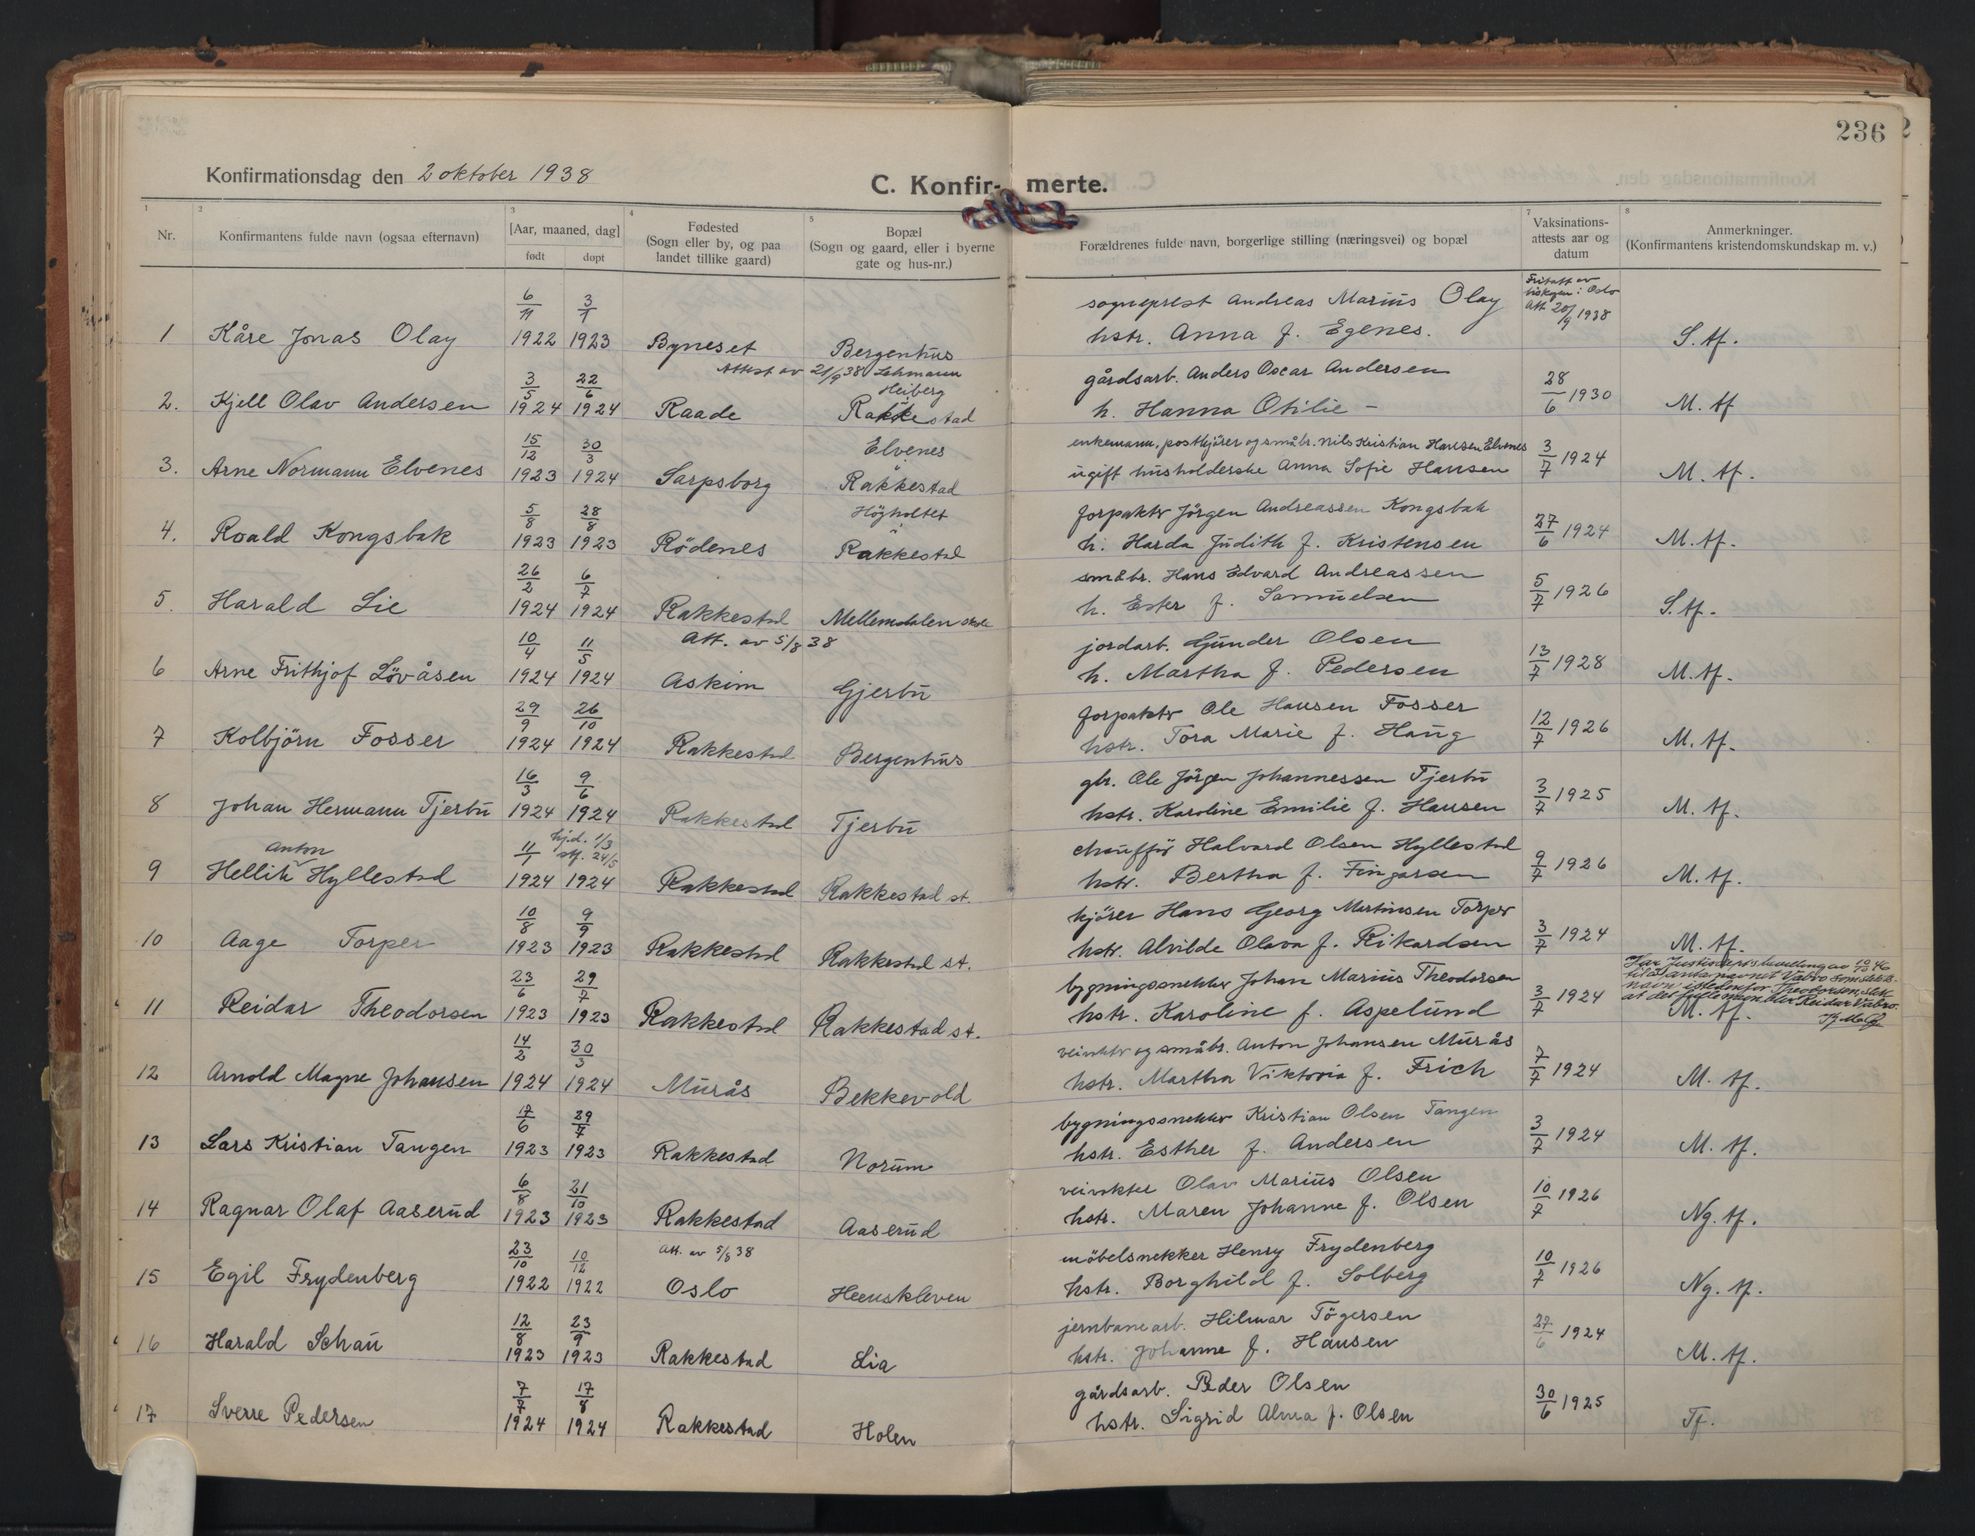 236
Konfirmationsdag den 2 oktober 1938
C. Konfir- merte.
Nr.
Konfirmantens fulde navn (ogsaa efternavn)
[Aar, maaned, dag]
født døpt
Fødested
(Sogn eller by, og paa
landet tillike gaard)
Bopæl
(Sogn og gaard, eller i byerne
gate og hus-nr.)
Forældrenes fulde navn, borgerlige stilling (næringsvei) og bopæl
Vaksinations-
attests aar og
datum
Anmerkninger.
(Konfirmantens kristendomskundskap m. v.)
6/11 3/1 sogneprest Andreas Marius Olay Fritatt av
biskopen i Oslo
Att. 20/9 1938
1 Kåre Jonas Olay 1922 1923 Byneset Bergenhus hstr. Anna f. Egenes. S. tf.
Attest av 21/9 38 Lehmann
Heiberg
3/5 22/6 gårdsarb. Anders Oscar Andersen
2. Kjell Olav Andersen 1924 1924 Raade Rakkestad h. Hanna Otilie - 28/6 1930 M. tf
15/12 30/3 Elvenes enkemann, postkjörer og småbr. Nils Kristian Hansen Elvenes
3. Arne Normann Elvenes 1923 1924 Sarpsborg Rakkestad ugift husholderske Anna Sofie Hansen 3/7 1924 M. tf.
5/8 28/8 Högholtet forpaktr Jörgen Andreassen Kongsbak
4. Roald Kongsbak 1923 1923 Rödenes Rakkestad h. Harda Judith f. Kristensen 27/6 1924 M. tf.
26/2 6/7 småbr. Hans Edvard Andreassen
5. Harald Lie 1924 1924 Rakkestad Mellemdalen skole h. Ester f. Samuelsen 5/7 1926 S. tf.
10/4 11/5 Att. av 5/8 38 jordarb. Gunder Olsen
6 Arne Frithjof Lövåsen 1924 1924 Askim Gjerbu h. Martha f. Pedersen 13/7 1928 M. tf.
29/9 26/10 forpaktr Ole Hansen Fosser
7 Kolbjörn Fosser 1924 1924 Rakkestad Bergenhus hstr. Tora Marie f. Haug 12/7 1926 M. tf.
16/3 9/6 gbr. Ole Jörgen Johannessen Tjerbu
8 Johan Hermann Tjerbu 1924 1924 Rakkestad Tjerbu hstr. Karoline Emilie f. Hansen 3/7 1925 M. tf.
Anton 11/1 hjd. 1/3
stf. 24/5 chaufför Halvard Olsen Hyllestad
9 Hellik Hyllestad 1924 1924 Rakkestad Rakkestad st. hstr. Bertha f. Fingarsen 9/7 1926 M. tf.
10/8 9/9 kjörer Hans Georg Martinsen Torper
10 Aage Torper 1923 1923 Rakkestad Rakkestad st. hstr. Alvilde Olava f. Rikardsen 3/7 1924 M. tf.
23/6 29/7 bygningssnekker Johan Marius Theodorsen
Har Justisdep's bevilling av 19/10 46
til å anta navnet Vabro som slekts-
navn istedenfor Theodorsen, slik
at det fulle navn blir Reidar Vabro.
11 Reidar Theodorsen 1923 1923 Rakkestad Rakkestad st. hstr. Karoline f. Aspelund 3/7 1924 M. tf.
14/2 30/3 veivokter og småbr. Anton Johansen Murås
12 Arnold Magne Johansen 1924 1924 Murås Bekkevold hstr. Martha Viktoria f. Frich 7/7 1924 M. tf.
17/6 29/7 bygningssnekker Kristian Olsen Tangen
13 Lars Kristian Tangen 1923 1923 Rakkestad Norum hstr. Esther f. Andersen 3/7 1924 M. tf.
6/8 21/10 veivokter Olav Marius Olsen
14 Ragnar Olaf Aaserud 1923 1923 Rakkestad Aaserud hstr. Maren Johanne f. Olsen 10/7 1926 Ng. tf.
23/10 10/12 Att. av 5/8 38 möbelsnekker Henry Frydenberg
15 Egil Frydenberg 1922 1922 Oslo Heenskleven hstr. Borghild f. Solberg 10/7 1926 Ng. tf.
12/8 23/9 jernbanearb. Hilmar Tögersen
16 Harald Schau 1923 1923 Rakkestad Lia hstr. Johanne f. Hansen 27/6 1924 M. tf.
7/7 17/8 gårdsarb. Peder Olsen
17 Sverre Pedersen 1924 1924 Rakkestad Holen hstr. Sigrid Alma f. Olsen 30/6 1925 Tf.